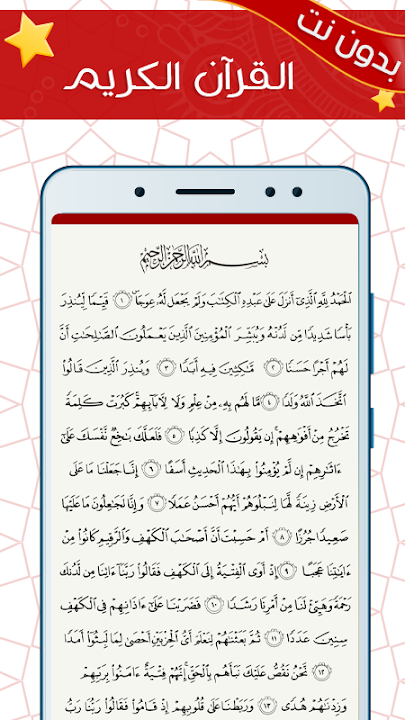 بدون نت
القرآن الكريم
بِسْمِ اللَّهِ الرَّحْمَٰنِ الرَّحِيمِ
الْحَمْدُ لِلَّهِ الَّذِي أَنزَلَ عَلَىٰ عَبْدِهِ الْكِتَابَ وَلَمْ يَجْعَل لَّهُ عِوَجًا ۜ ١ قَيِّمًا لِّيُنذِرَ
بَأْسًا شَدِيدًا مِّن لَّدُنْهُ وَيُبَشِّرَ الْمُؤْمِنِينَ الَّذِينَ يَعْمَلُونَ الصَّالِحَاتِ أَنَّ
لَهُمْ أَجْرًا حَسَنًا ٢ مَّاكِثِينَ فِيهِ أَبَدًا ٣ وَيُنذِرَ الَّذِينَ قَالُوا
اتَّخَذَ اللَّهُ وَلَدًا ٤ مَّا لَهُم بِهِ مِنْ عِلْمٍ وَلَا لِآبَائِهِمْ كَبُرَتْ كَلِمَةً
تَخْرُجُ مِنْ أَفْوَاهِهِمْ إِن يَقُولُونَ إِلَّا كَذِبًا ٥ فَلَعَلَّكَ بَاخِعٌ نَّفْسَكَ عَلَىٰ
آثَارِهِمْ إِن لَّمْ يُؤْمِنُوا بِهَٰذَا الْحَدِيثِ أَسَفًا ٦ إِنَّا جَعَلْنَا مَا عَلَى
الْأَرْضِ زِينَةً لَّهَا لِنَبْلُوَهُمْ أَيُّهُمْ أَحْسَنُ عَمَلًا ٧ وَإِنَّا لَجَاعِلُونَ مَا عَلَيْهَا
صَعِيدًا جُرُزًا ٨ أَمْ حَسِبْتَ أَنَّ أَصْحَابَ الْكَهْفِ وَالرَّقِيمِ كَانُوا مِنْ
آيَاتِنَا عَجَبًا ٩ إِذْ أَوَى الْفِتْيَةُ إِلَى الْكَهْفِ فَقَالُوا رَبَّنَا آتِنَا مِن لَّدُنكَ
رَحْمَةً وَهَيِّئْ لَنَا مِنْ أَمْرِنَا رَشَدًا ١٠ فَضَرَبْنَا عَلَىٰ آذَانِهِمْ فِي الْكَهْفِ
سِنِينَ عَدَدًا ١١ ثُمَّ بَعَثْنَاهُمْ لِنَعْلَمَ أَيُّ الْحِزْبَيْنِ أَحْصَىٰ لِمَا لَبِثُوا أَمَدًا
١٢ نَّحْنُ نَقُصُّ عَلَيْكَ نَبَأَهُم بِالْحَقِّ إِنَّهُمْ فِتْيَةٌ آمَنُوا بِرَبِّهِمْ
وَزِدْنَاهُمْ هُدًى ١٣ وَرَبَطْنَا عَلَىٰ قُلُوبِهِمْ إِذْ قَامُوا فَقَالُوا رَبُّنَا رَبُّ